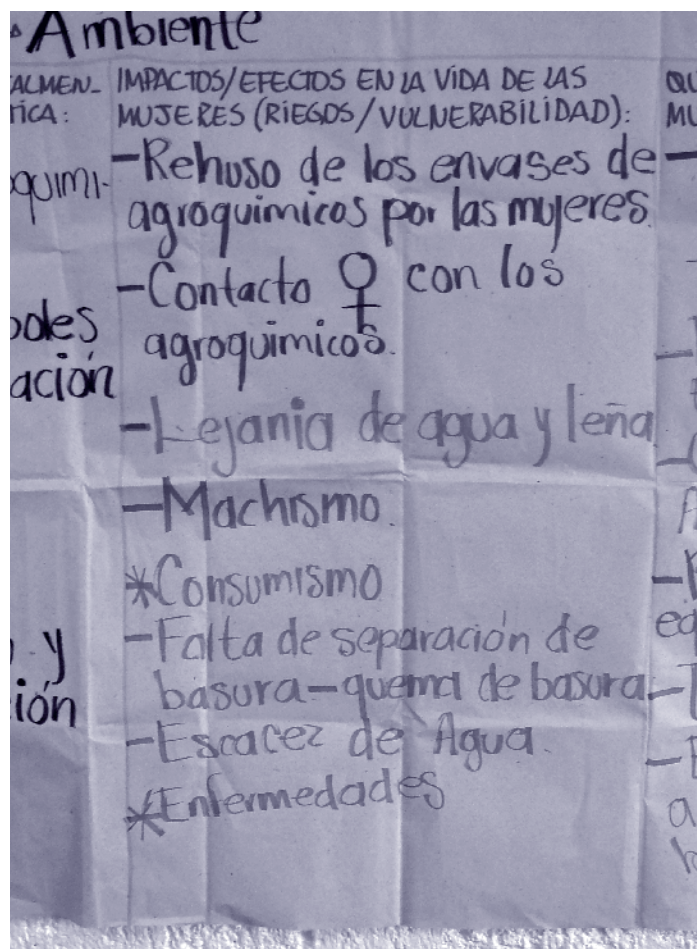 Ambiente
ALMEN-
TICA:
IMPACTOS/EFECTOS EN LA VIDA DE LAS
MUJERES (RIEGOS/VULNERABILIDAD):
QU
MU
-Rehuso de los envases de
agroquimicos por las mujeres.
-Contacto ♀ con los
agroquimicos.
-Lejania de agua y leña
-Machismo.
*Consumismo
-Falta de separación de
basura-quema de basura
-Escacez de Agua.
*Enfermedades
oquimi-
boles
ación
y
ión